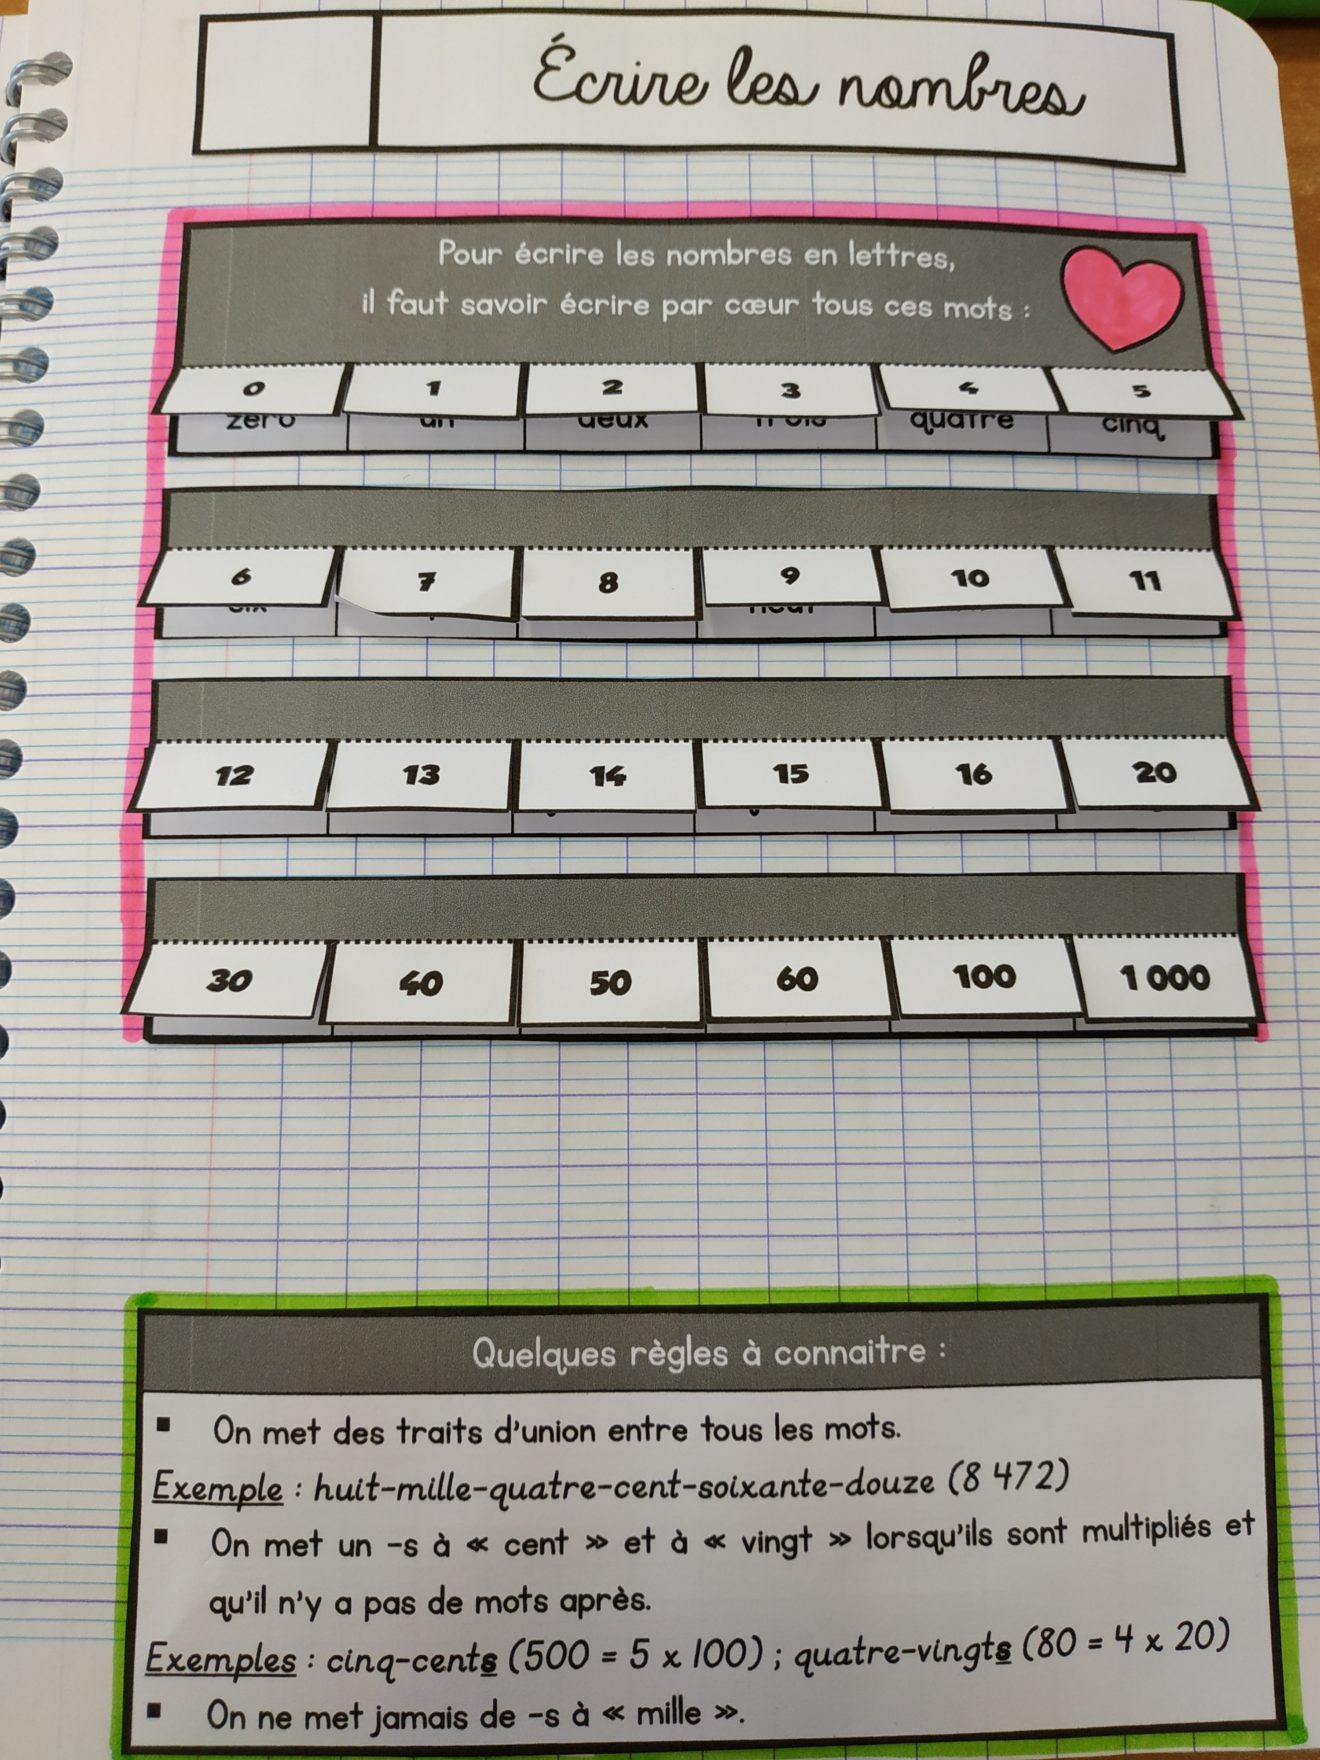 Écrire les nombres
Pour écrire les nombres en lettres,
il faut savoir écrire par cœur tous ces mots :
0 1 2 3 4 5
zéro un deux trois quatre cinq
6 7 8 9 10 11
six neuf
12 13 14 15 16 20
30 40 50 60 100 1 000
Quelques règles à connaitre :
▪ On met des traits d'union entre tous les mots.
Exemple : huit-mille-quatre-cent-soixante-douze (8 472)
▪ On met un -s à « cent » et à « vingt » lorsqu'ils sont multipliés et
qu'il n'y a pas de mots après.
Exemples : cinq-cents (500 = 5 x 100) ; quatre-vingts (80 = 4 x 20)
▪ On ne met jamais de -s à « mille ».